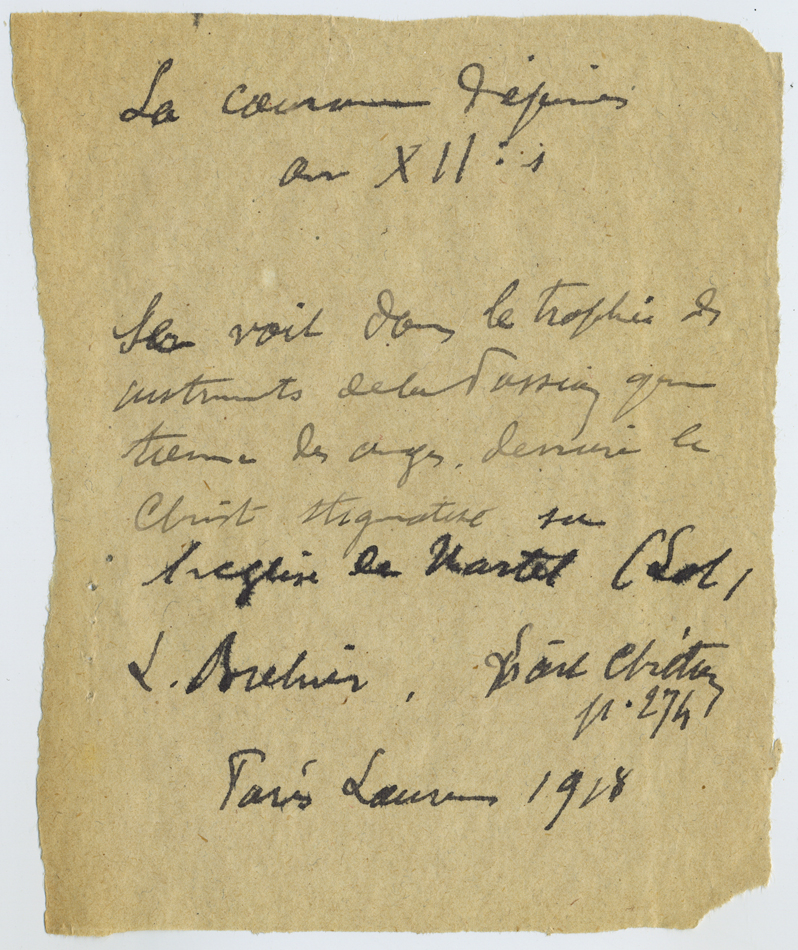 La couronne d'épines
au XII: s
Se voit dans le trophée des
instruments de la Passion que
tienne des anges, derrière le
Christ stigmatisé sur
l'eglise de Martel (Lot)
L. Brehier, L'art Chrétien
p. 274
Paris Laurens 1918